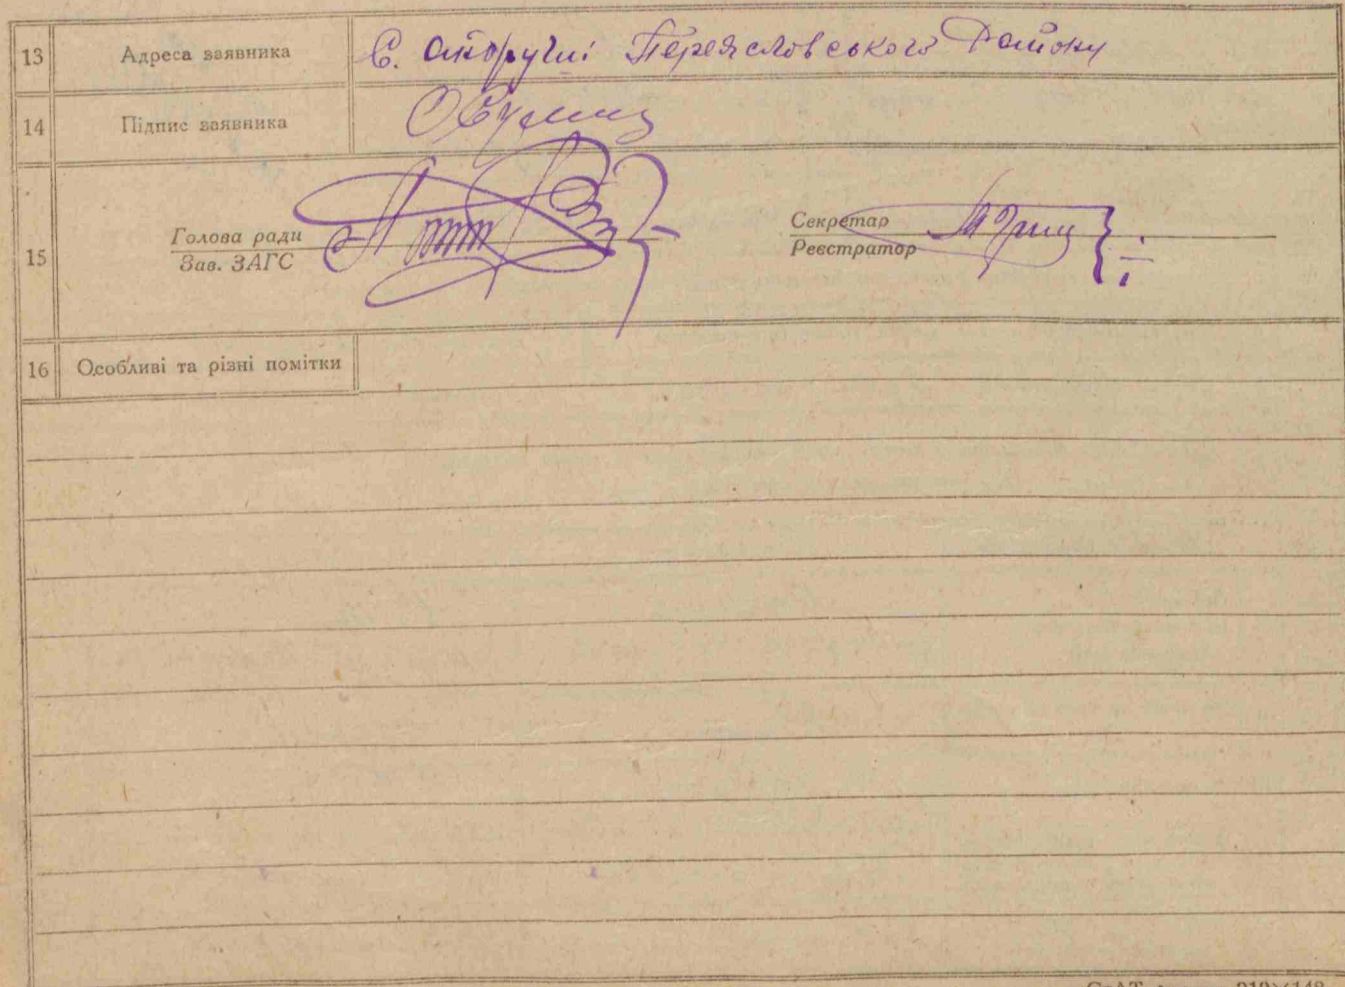 13 Адреса заявника С. Переясловського Району
14 Підпис заявника
15 Голова ради
Зав. ЗАГС
Секретар
Реєстратор
16 Особливі та різні помітки